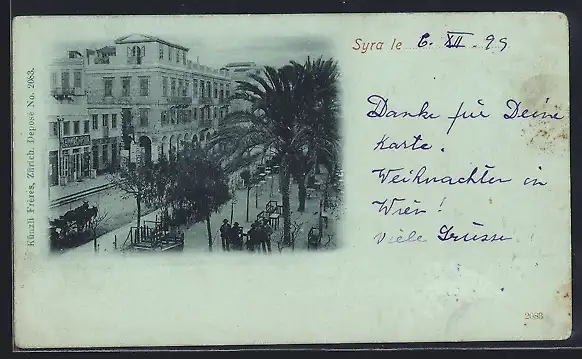 Syra le 6. XII. 99
Danke für Deine
Karte.
Weihnachten in
Wien!
Viele Grüsse
Künzli Frères, Zürich. Deposé No. 2083.
2083